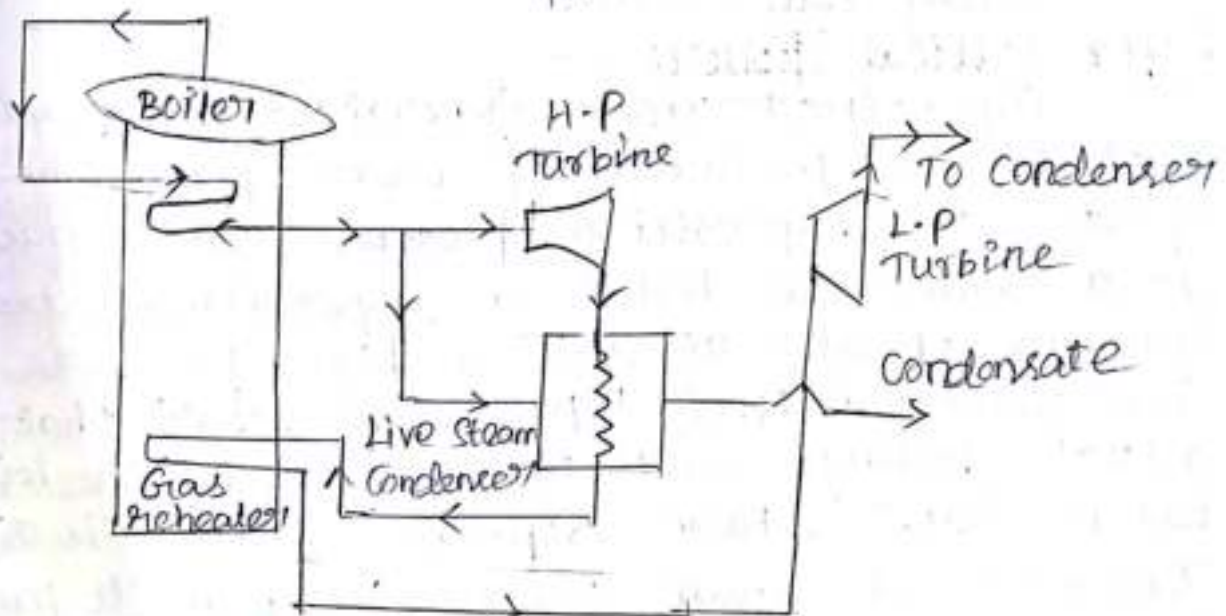 Boiler
H.P
Turbine
To Condenser
L.P
Turbine
Condensate
Live Steam
Condencer
Gas
reheater